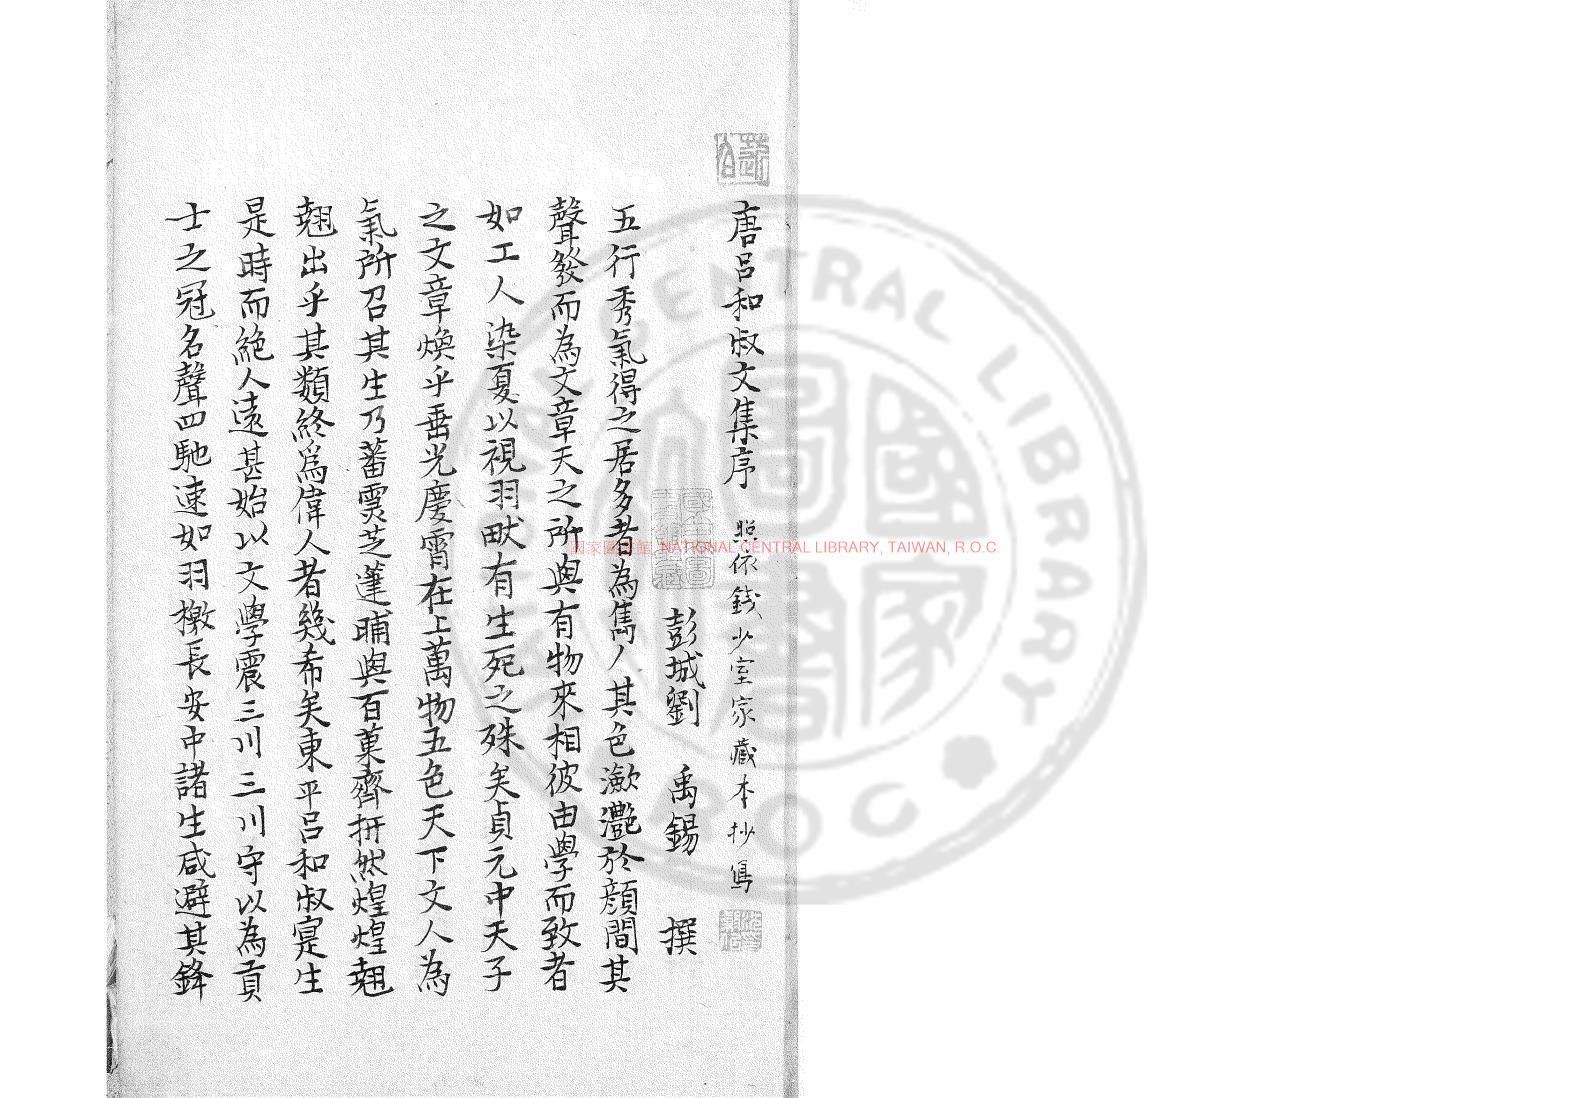 唐呂和叔文集序 照依錢少室家藏本抄寫
彭城劉 禹錫 撰
五行秀氣得之居多者為雋人其色瀲灧於顏間其
聲發而為文章天之所與有物來相彼由學而致者
如工人染夏以視羽畎有生死之殊矣貞元中天子
之文章煥乎垂光慶霄在上萬物五色天下文人為
氣所召其生乃蕃霛芝蓬莆與百菓齊拼然煌煌翹
翹出乎其類終爲偉人者幾希矣東平呂和叔寔生
是時而絕人遠甚始以文學震三川三川守以為貢
士之冠名聲四馳速如羽檄長安中諸生咸避其鋒
國家圖書館, NATIONAL CENTRAL LIBRARY, TAIWAN, R.O.C.
NATIONAL CENTRAL LIBRARY
ROC
國家圖書